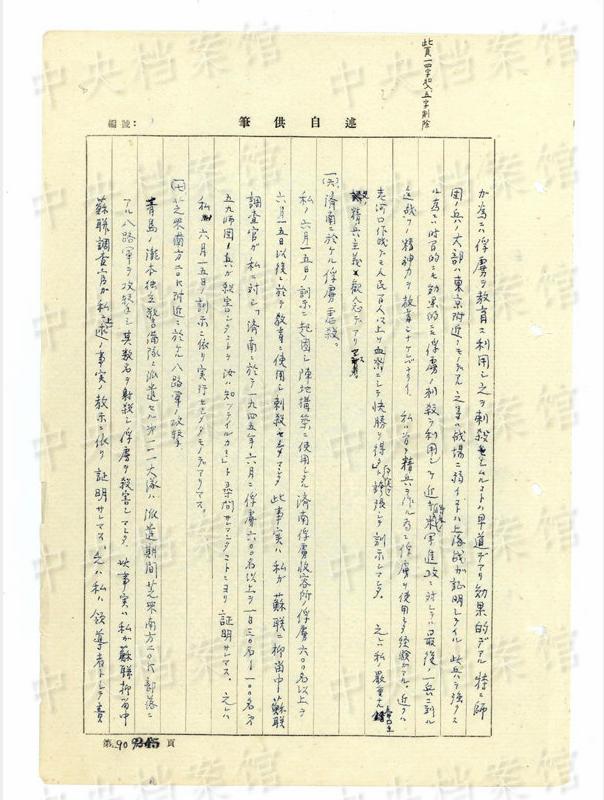 此頁一四字加入五字削除
編號：
筆供自述
ガ為ニハ俘虜ヲ教育ニ利用シ之ヲ刺殺セシムルコトハ早道デアリ効果的デアル 特ニ師
団兵ノ大部ハ東京附近ノモノデアル 之等ノ戦場ニ弱イコトハ上海戦ガ証明シテイル 此兵ヲ強クス
ル為ニハ時百的ニモ効果的ニモ俘虜ノ刺殺ヲ利用シテ 近キ米軍進攻ニ対シテハ最後ノ一兵ニ到ル
迄戦フノ精神力ヲ教育シナケレバナラナイ 私ハ昔モ精兵ヲ作ル為ニ俘虜ヲ使用シタ経験ガアル、近クハ
老河口作戦デモ人民百人以上ノ血祭ニシテ快勝ヲ得タト誇張シテ訓示シマシタ 之ハ私ノ
精兵主義ノ観念デアリマス
(六)、済南ニ於ケル俘虜悪殺。
私ノ六月一五日ノ訓示ニ起因シ陣地構築ニ使用シタ済南俘虜收容所俘虜六〇〇名以上ヲ
六月一五日以後ニ於テ教育ニ使用シ刺殺セシメマシタ 此事実ハ私ガ蘇联ニ抑留中蘇联
調査官ガ私ニ対シ「済南ニ於テ一九四五年六月ニ俘虜六〇〇名以上ヲ一日三〇名–一〇〇名宛
五九師団ノ兵ガ殺害シタコトヲ汝ハ知ッテイルカ」ト尋問サレマシタコトニヨリ証明サレマス、之レハ
私ノ六月一五日ノ訓示ニ依リ実行セシメタモノデアリマス。
(七)芝罘南方二〇K附近ニ於ケル八路軍ノ攻撃
青島ノ瀧本独立警備隊ニ派遣セル第一一一大隊ハ派遣期間芝罘南方二〇K部落ニ
アル八路軍ヲ攻撃シ其数名ヲ射殺シ俘虜ヲ殺害シマシタ 此事実ハ私ガ蘇联抑留中
蘇联調査官ガ私ニ上述ノ事実ノ教示ニ依リ証明サレマス、之ハ私ハ領導者トシテ責
第90 9245頁